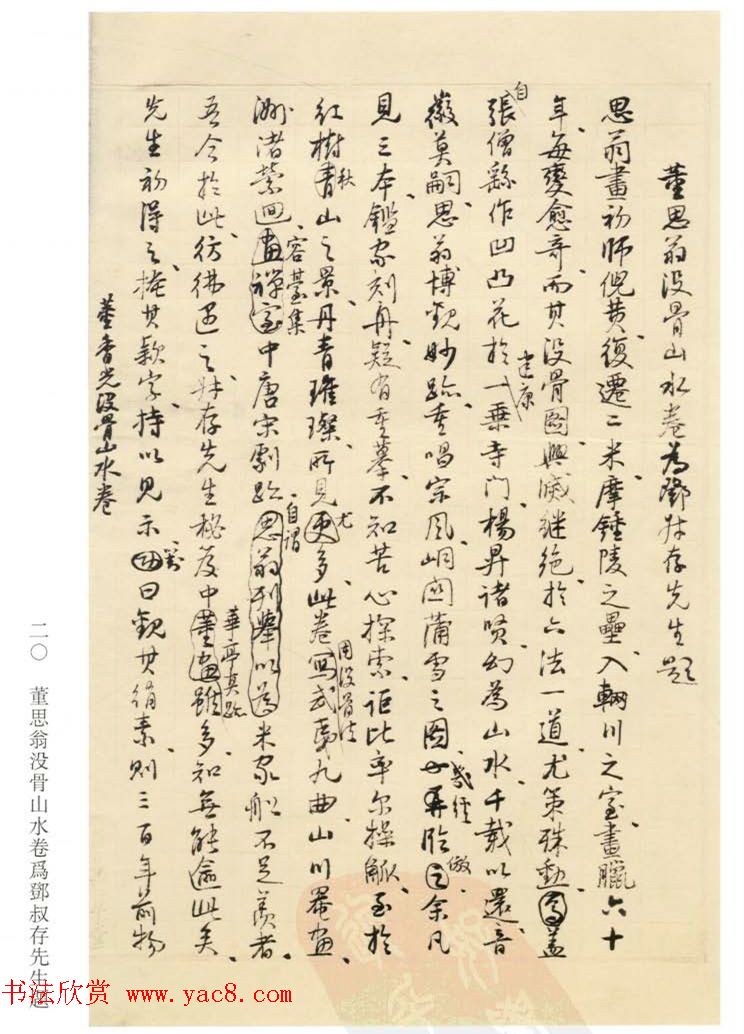 董思翁没骨山水卷為鄧叔存先生題
思翁畫初師倪黃、復遷二米、摩鍾陵之壘、入輞川之室、畫臘六十
年、每變愈奇、而其没骨圖、興滅繼絶、於六法一道、尤策殊勳、蓋
自張僧繇作凹凸花於建康一乗寺門、楊昇諸賢、幻為山水、千載以還、音
徽莫嗣、思翁博觀妙跡、重唱宗風、峒関蒲雪之圖、幾經倣余凡
見三本、鑑家刻舟、疑有重摹、不知苦心探索、詎比率尔操觚、至於
紅樹秋山之景、丹青璀璨、所見尤多、此卷用没骨法寫武夷九曲、山川罨畫、
洲渚縈迴、容臺集中唐宋劇跡、自謂米家船不足羨者、
吾今於此、彷彿遇之、叔存先生秘笈中華亭真跡多、知無能逾此矣、
先生初得之、掩其款字、持以見示、對曰觀其絹素、則三百年前物
董香光没骨山水卷
二〇 董思翁没骨山水卷爲鄧叔存先生題
书法欣赏 www.yac8.com